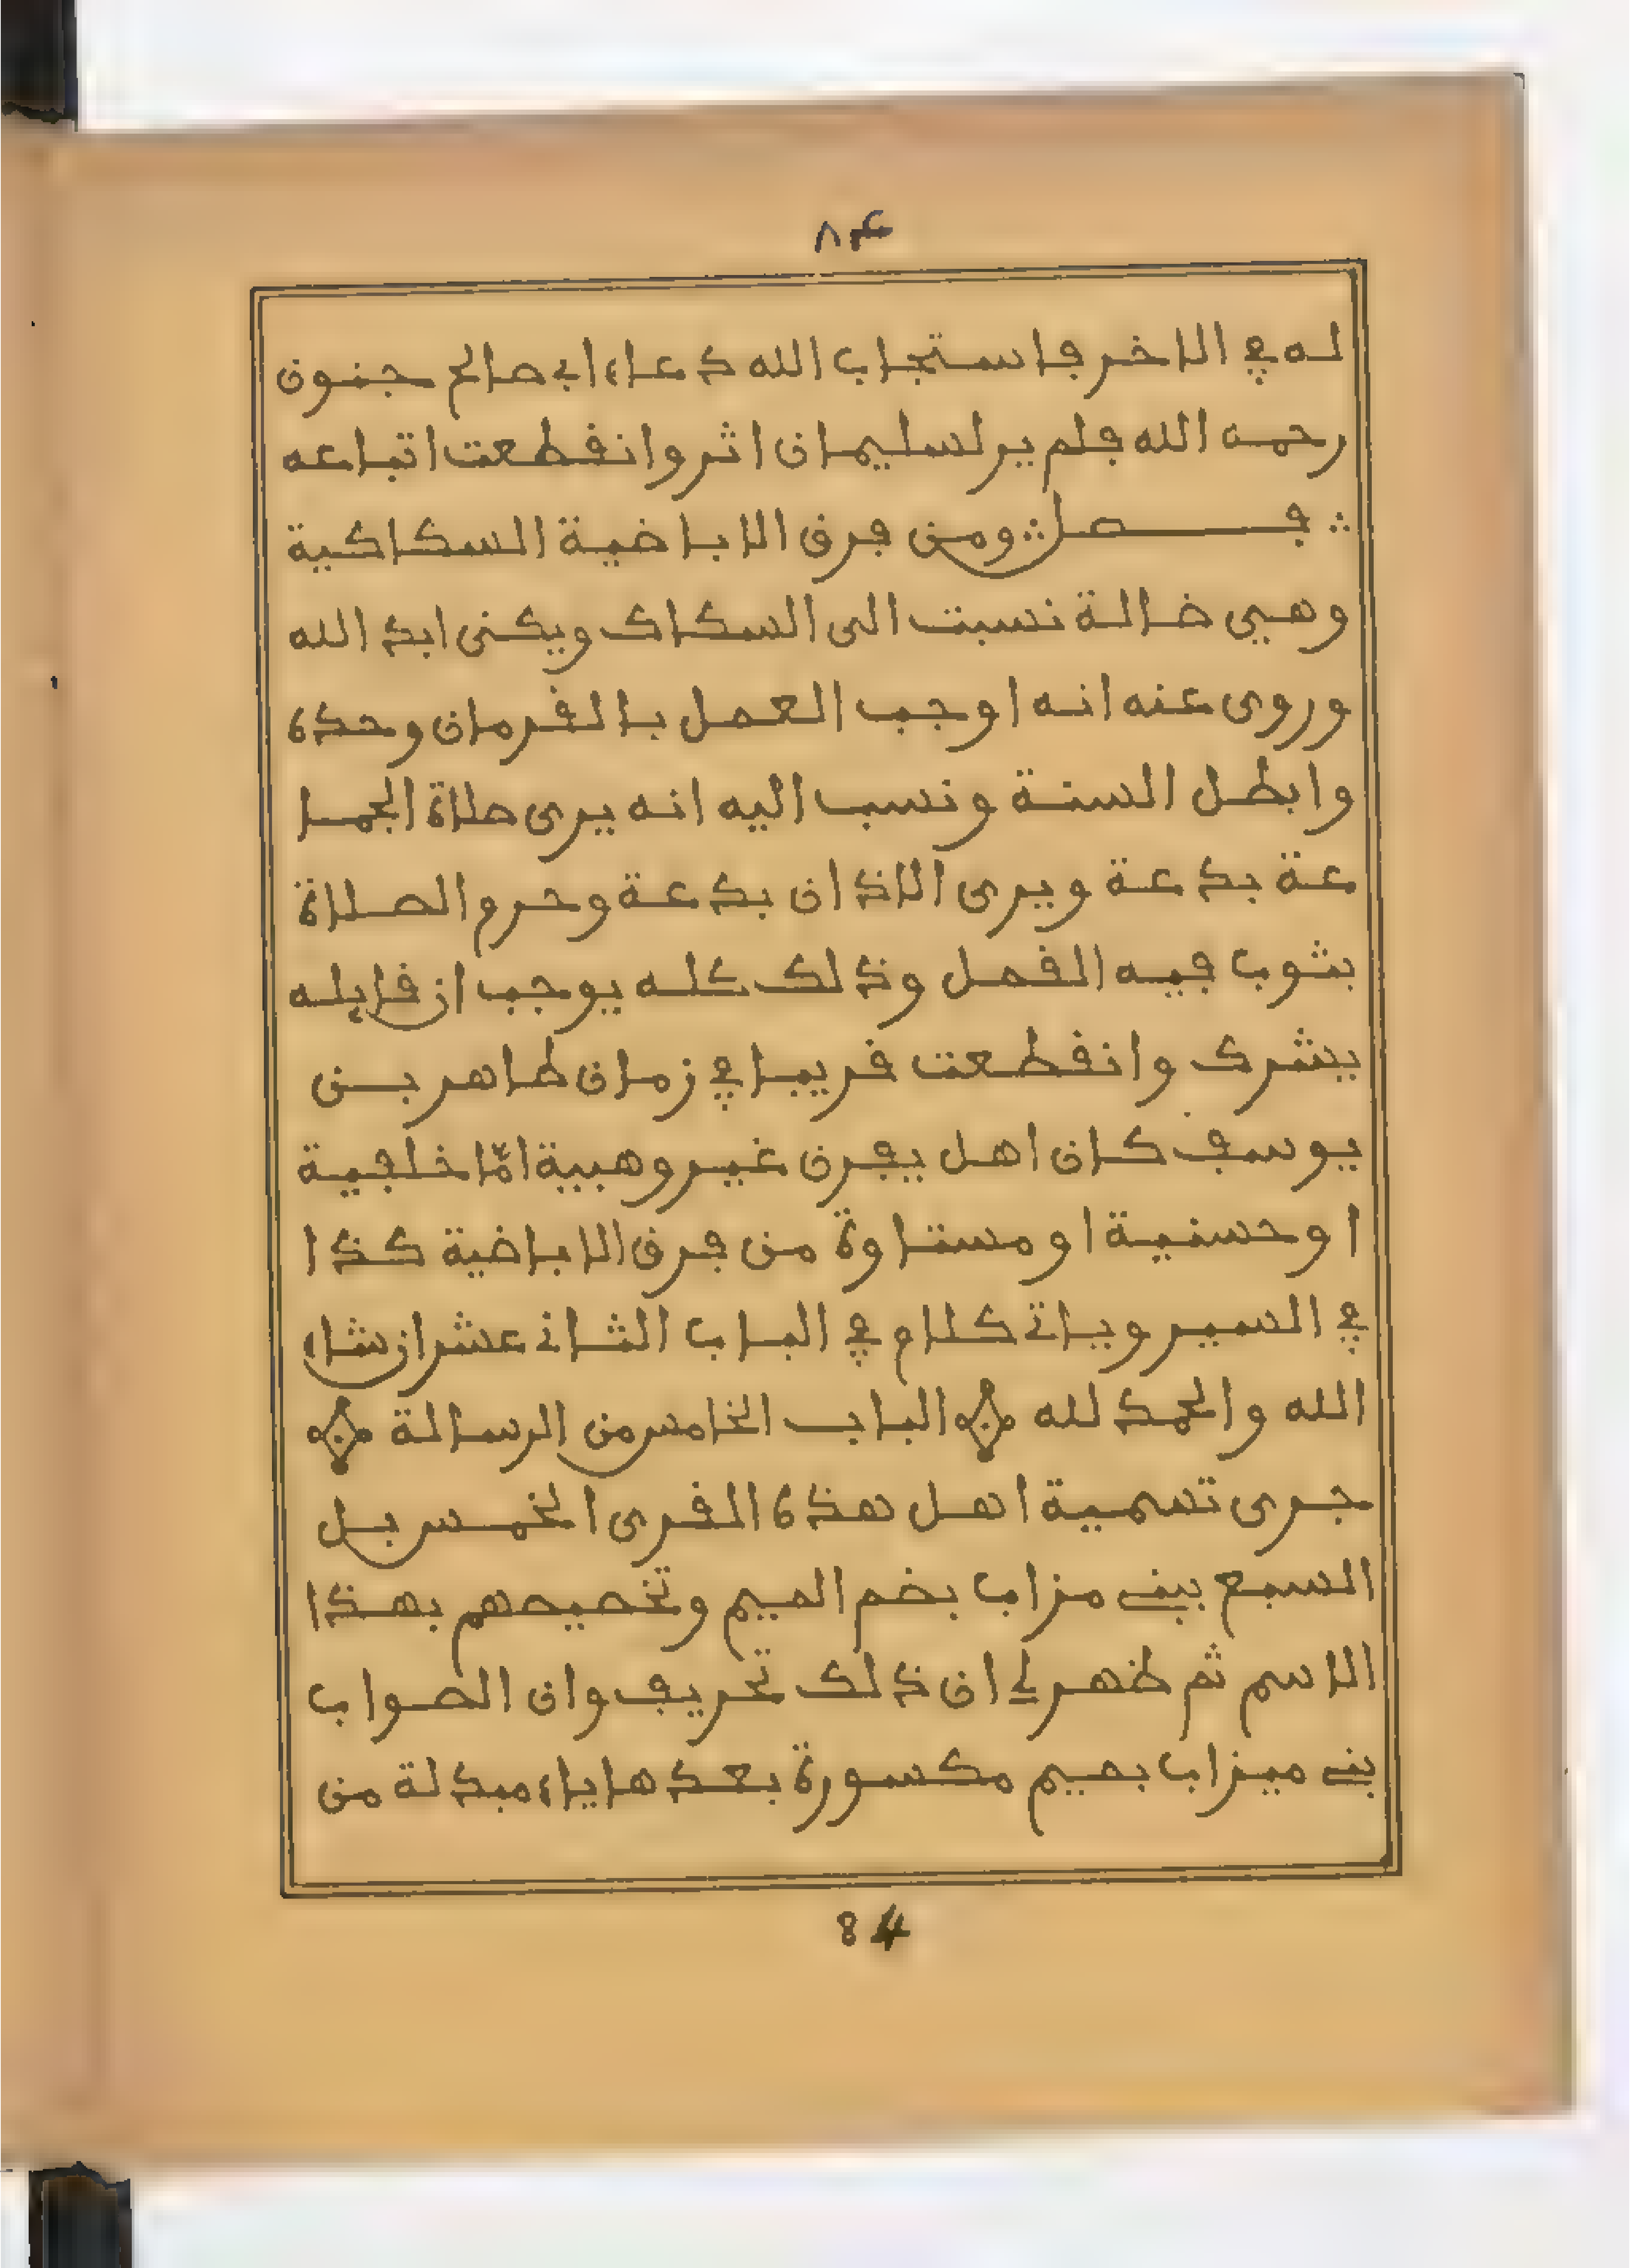 ٨٤
له في الاخر فاستجاب الله دعاء ابي صالح جنون
رحمه الله فلم ير لسليمان اثر وانقطعت اتباعه
فصل ومن فرق الاباضية السكاكية
وهيي ضالة نسبت الى السكاك ويكنى ابد الله
وروى عنه انه اوجب العمل بالقرءان وحده
وابطل السنة ونسب اليه انه يرى صلاة الجما
عة بدعة ويرى الاذان بدعة وحرم الصلاة
بثوب فيه القمل وذلك كله يوجب ان قايله
يشرك وانقطعت قريبا في زمان طاهر بن
يوسف كان اهل يفرن غير وهبية امّا خلفية
او حسنية او مستاوة من فرق الاباضية كذا
في السير وياتي كلام في الباب الثاني عشر ان شاء
الله والحمد لله الباب الخامس من الرسالة
جرى تسمية اهل هذه القرى الخمس بل
السبع ببني مزاب بضم الميم وتخصيصهم بهذا
الاسم ثم ظهر لي ان ذلك تحريف وان الصواب
بني ميزاب بميم مكسورة بعدها ياء مبدلة من
84